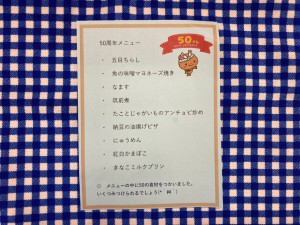 50th
50周年メニュー
・ 五目ちらし
・ 魚の味噌マヨネーズ焼き
・ なます
・ 筑前煮
・ たことじゃがいものアンチョビ炒め
・ 納豆の油揚げピザ
・ にゅうめん
・ 紅白かまぼこ
・ きなこミルクプリン
◎ メニューの中に50の食材をつかいました。
いくつみつけられるでしょう